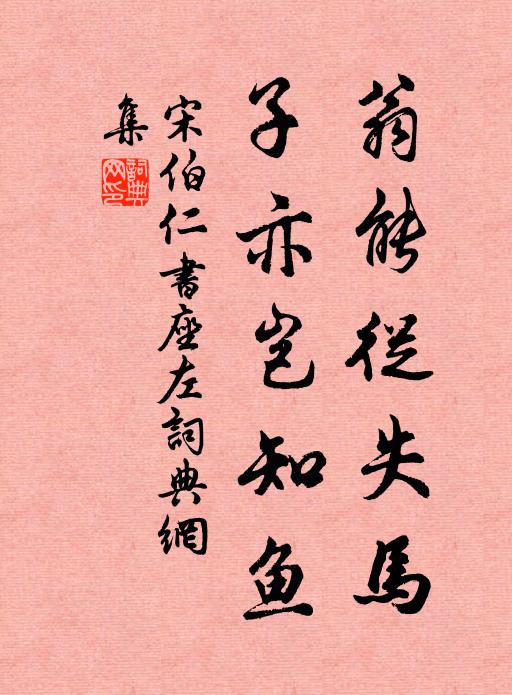 翁能從失馬
子亦豈知鱼
宋伯仁書座左詞典網
集
詞典網印